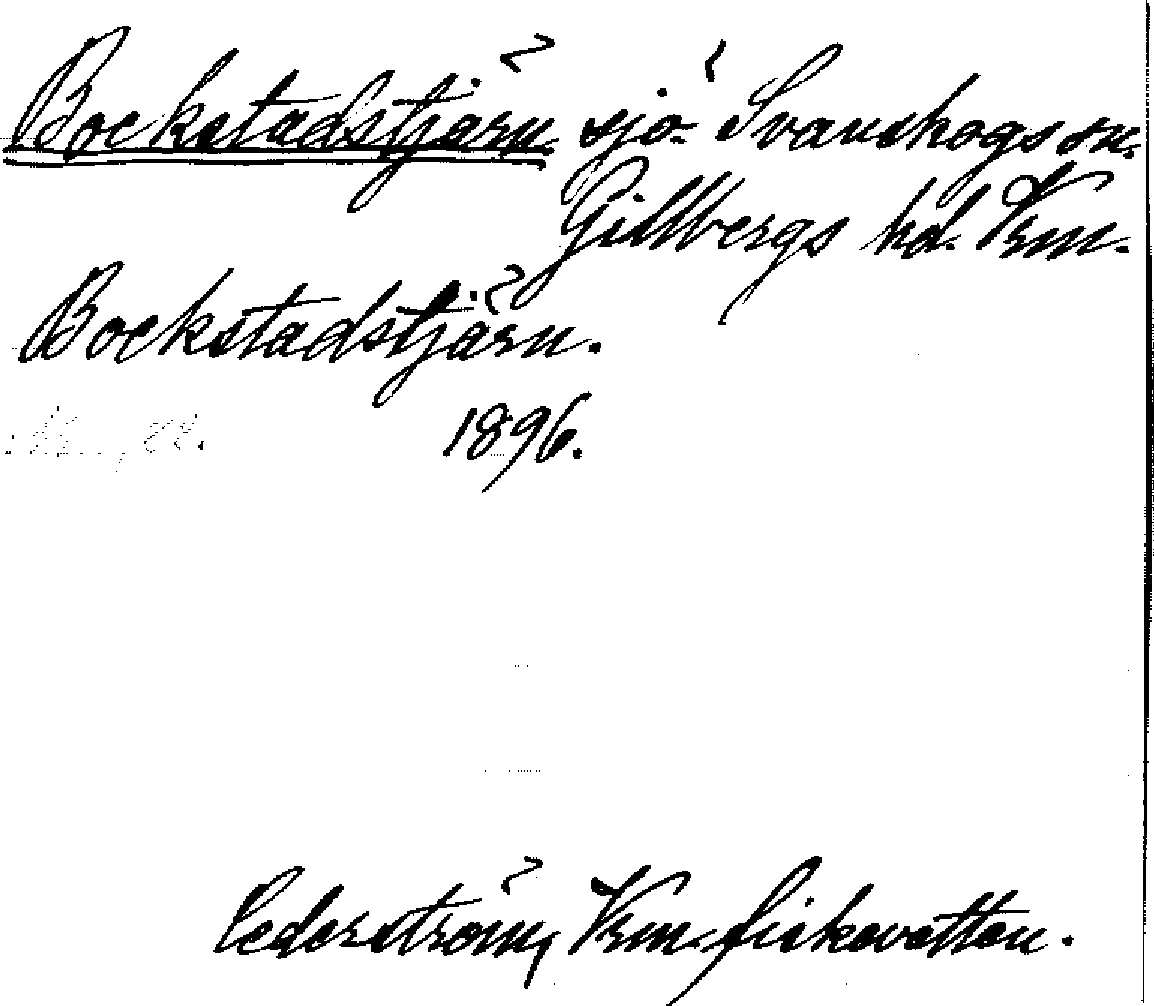 Bockstadstjärn. sjö. Svanskogs sn.
Gillbergs hd. Vrm.
Bockstadstjärn.
1896.
Cederström, Vrm. fiskevatten.